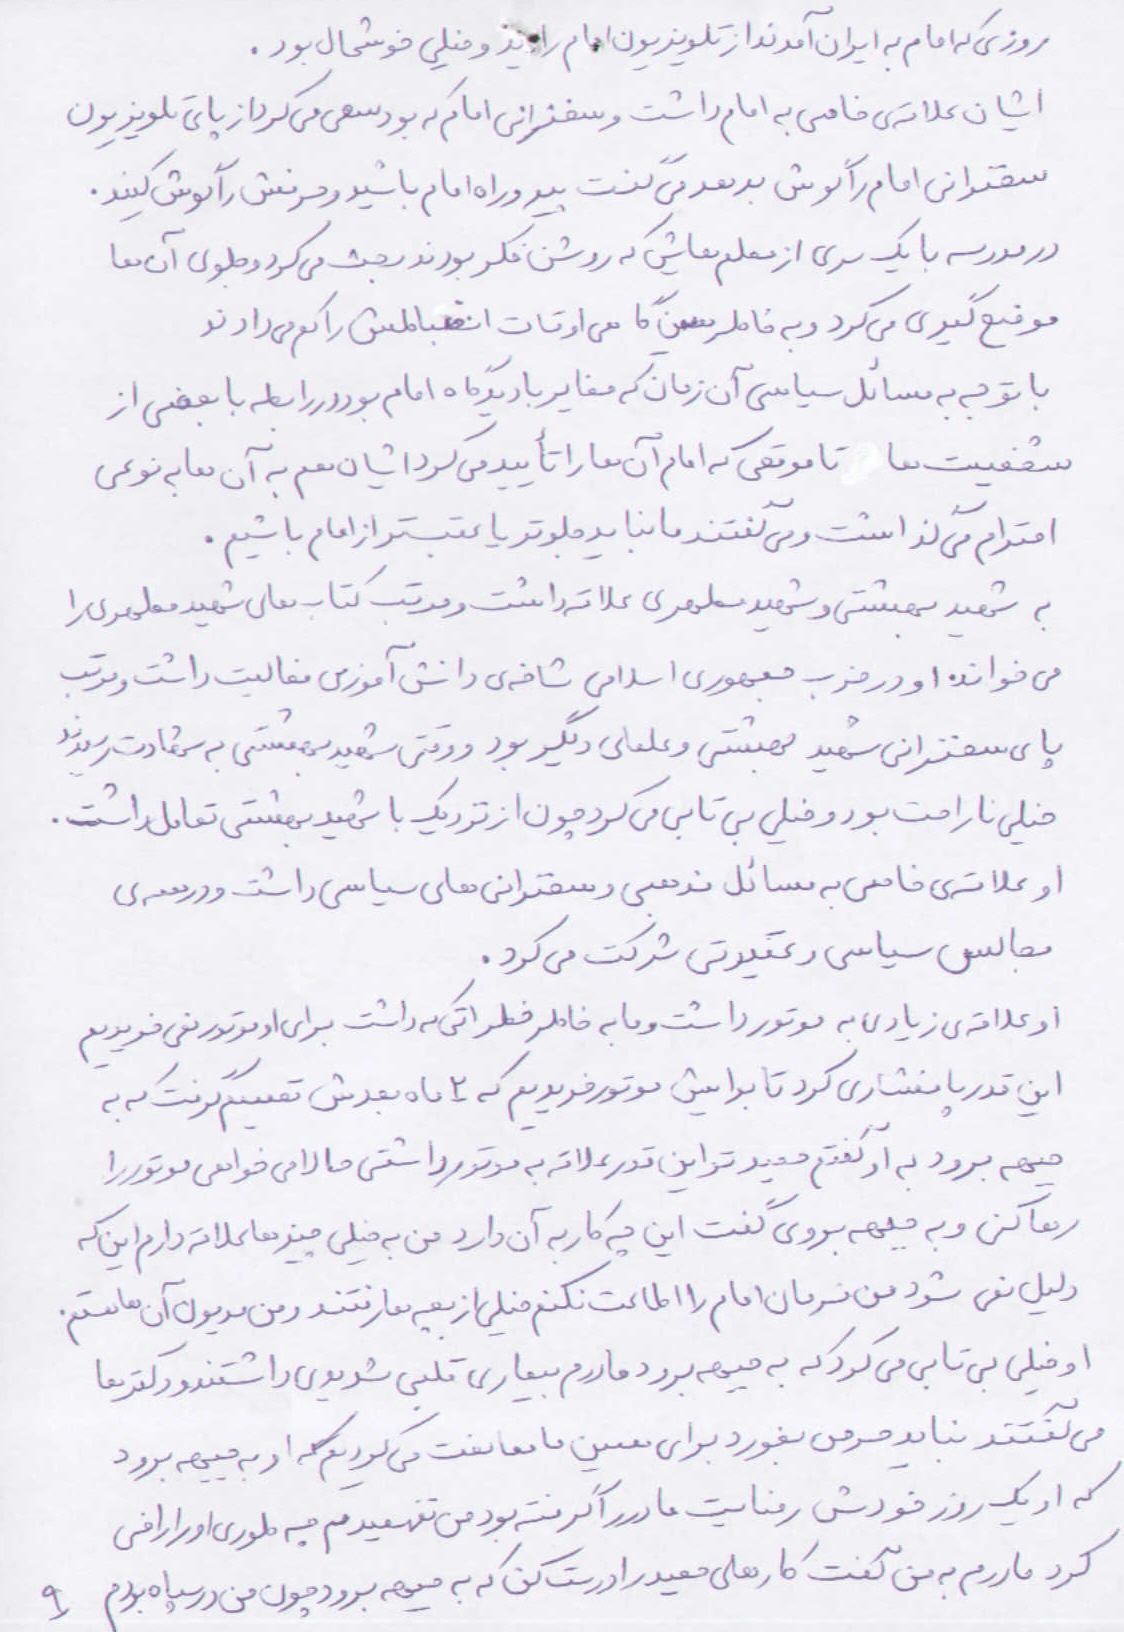 روزی که امام به ایران آمدند از تلویزیون امام را دید و خیلی خوشحال بود.
ایشان علاقه‌ی خاصی به امام داشت و سخنرانی امام که بود سعی می کرد از پای تلویزیون
سخنرانی امام را گوش بدهد می گفت پیرو راه امام باشید و حرفش را گوش کنید.
در مدرسه با یک سری از معلم هایش که روشن فکر بودند بحث می کرد و جلوی آن ها
موضع گیری می کرد و به خاطر همین گاهی اوقات انضباطش را کم می دادند
با توجه به مسائل سیاسی آن زمان که مغایر با دیدگاه امام بود در رابطه با بعضی از
شخصیت ها تا موقعی که امام آن ها را تأیید می کرد ایشان هم به آن ها به نوعی
احترام می گذاشت و می گفتند ما نباید جلوتر یا عقبتر از امام باشیم.
به شهید بهشتی و شهید مطهری علاقه داشت و مرتب کتاب های شهید مطهری را
می خواند. او در حزب جمهوری اسلامی شاخه‌ی دانش آموزی فعالیت داشت و مرتب
پای سخنرانی شهید بهشتی و علمای دیگر بود و وقتی شهید بهشتی به شهادت رسیدند
خیلی ناراحت بود و خیلی بی تابی می کرد چون از نزدیک با شهید بهشتی تعامل داشت.
او علاقه‌ی خاصی به مسائل مذهبی و سخنرانی های سیاسی داشت و در همه‌ی
مجالس سیاسی و عقیدتی شرکت می کرد.
او علاقه‌ی زیادی به موتور داشت و ما به خاطر خطراتی که داشت برای او موتور نمی خریدیم
این قدر پافشاری کرد تا برایش موتور خریدیم که ۲ ماه بعدش تصمیم گرفت که به
جبهه برود به او گفتم مجید تو این قدر علاقه به موتور داشتی حالا می خواهی موتور را
رها کنی و به جبهه بروی گفت این چه کار به آن دارد من به خیلی چیزها علاقه دارم این که
دلیل نمی شود من فرمان امام را اطاعت نکنم خیلی از بچه ها رفتند و من مدیون آن ها هستم.
او خیلی بی تابی می کرد که به جبهه برود مادرم بیماری قلبی شدیدی داشتند و دکترها
می گفتند نباید حرص بخورد برای همین ما مخالفت می کردیم که او به جبهه برود
که او یک روز خودش رضایت مادر را گرفته بود من نفهمیدم چه طوری او را راضی
کرد مادرم به من گفت کارهای مجید را درست کن که به جبهه برود چون من در سپاه بودم
۹